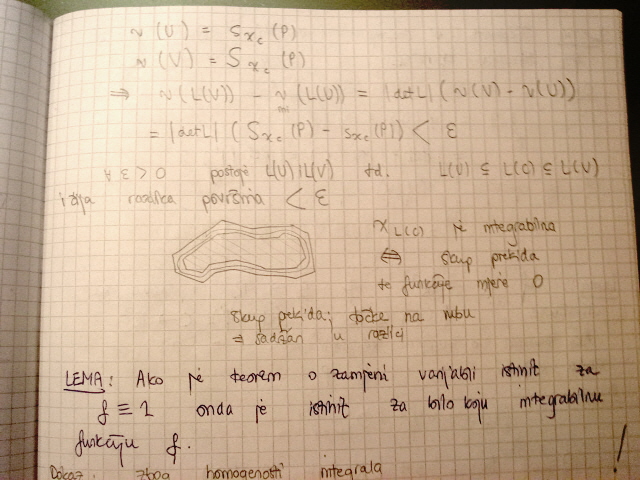 ν(U) = s_{χ_c}(P)
ν(V) = S_{χ_c}(P)
⇒ ν(L(V)) - ν(L(U)) = |det L| (ν(V) - ν(U))
= |det L| (S_{χ_c}(P) - s_{χ_c}(P)) < ε
∀ ε > 0 postoje L(U) i L(V) td. L(U) ⊆ L(C) ⊆ L(V)
i čija razlika površina < ε
χ_{L(C)} je integrabilna
⇔ skup prekida
te funkcije mjere 0
skup prekida: točke na rubu
⇒ sadržan u razlici
LEMA: Ako je teorem o zamjeni varijabli istinit za
f ≡ 1 onda je istinit za bilo koju integrabilnu
funkciju f. !
Dokaz: zbog homogenosti integrala